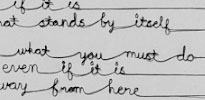 if it is
at stands by itself
what you must do
even if it is
way from here